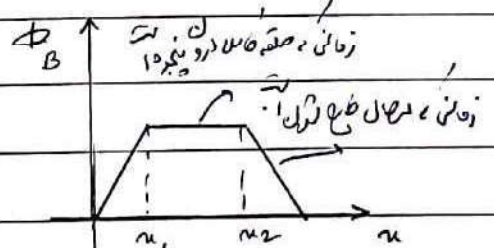 Φ_B
زمانی که حلقه کامل درون پنجره است
زمانی که در حال خارج شدن است.
x₁ x₂ x